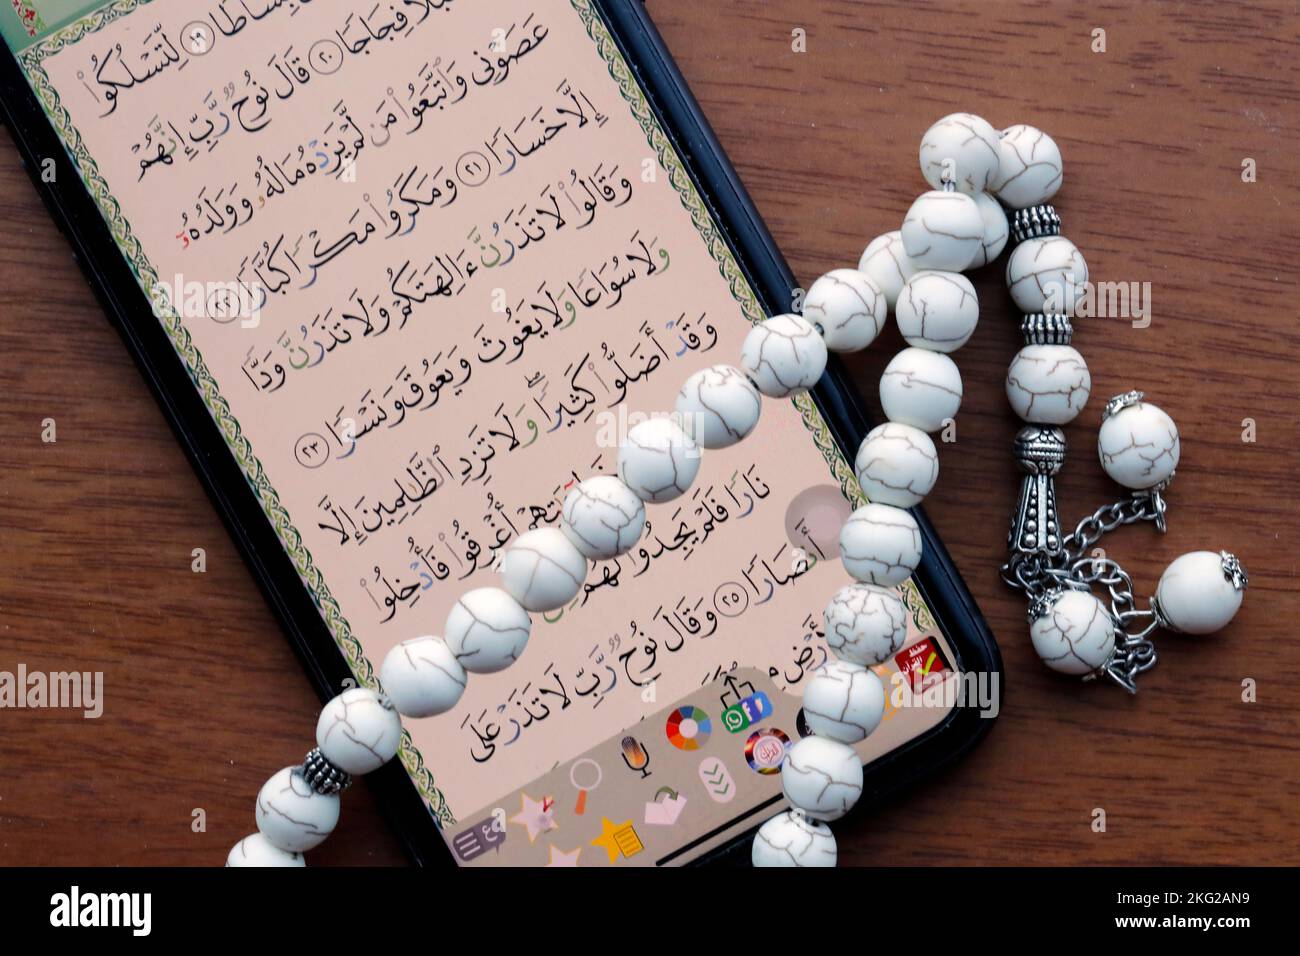 بِسَاطًا ١٩ لِّتَسْلُكُوا۟
سُبُلًا فِجَاجًا ٢٠ قَالَ نُوحٌ رَّبِّ إِنَّهُمْ
عَصَوْنِى وَٱتَّبَعُوا۟ مَن لَّمْ يَزِدْهُ مَالُهُۥ وَوَلَدُهُۥٓ
إِلَّا خَسَارًا ٢١ وَمَكَرُوا۟ مَكْرًا كُبَّارًا ٢٢
وَقَالُوا۟ لَا تَذَرُنَّ ءَالِهَتَكُمْ وَلَا تَذَرُنَّ وَدًّا
وَلَا سُوَاعًا وَلَا يَغُوثَ وَيَعُوقَ وَنَسْرًا ٢٣
وَقَدْ أَضَلُّوا۟ كَثِيرًا ۖ وَلَا تَزِدِ ٱلظَّٰلِمِينَ إِلَّا
أُغْرِقُوا۟ فَأُدْخِلُوا۟
نَارًا فَلَمْ يَجِدُوا۟ لَهُم
أَنصَارًا ٢٥ وَقَالَ نُوحٌ رَّبِّ لَا تَذَرْ عَلَى
حفظ
القرآن
ع
alamy
Image ID: 2KG2AN9
www.alamy.com